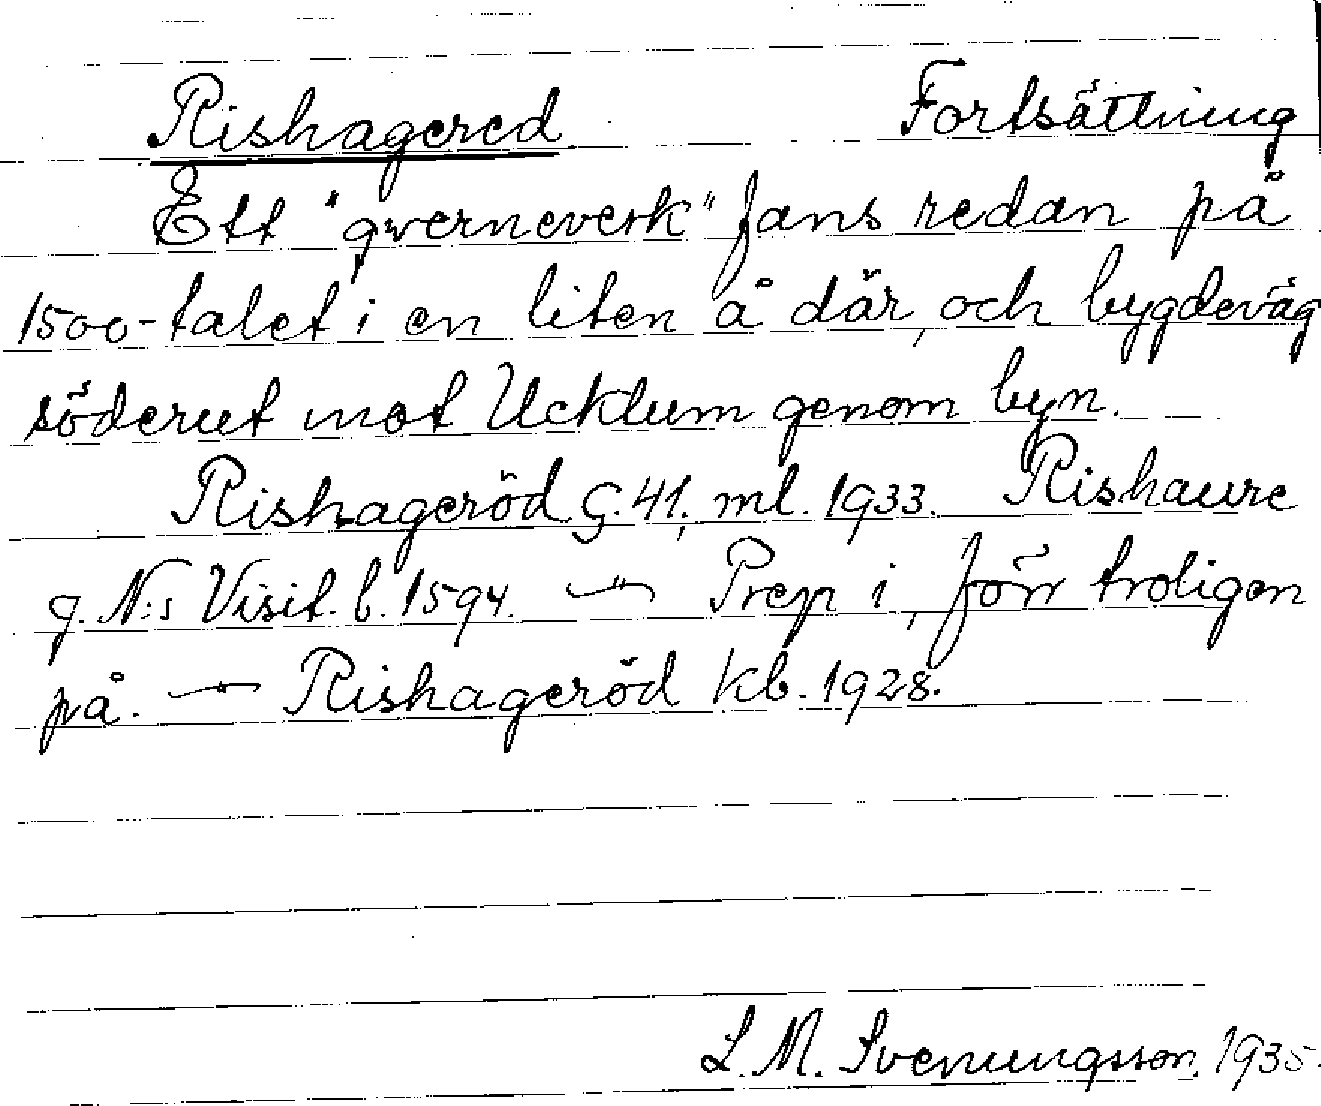 Rishagered Fortsättning
Ett "qverneverk" fans redan på
1500-talet i en liten å där, och bygdeväg
söderut mot Ucklum genom byn.
Rishageröd G. 41, ml. 1933. Rishaure
J. N:s Visit. b. 1594. — Prep i, förr troligen
på. — Rishageröd Kb. 1928.
L. M. Svenungsson, 1935.